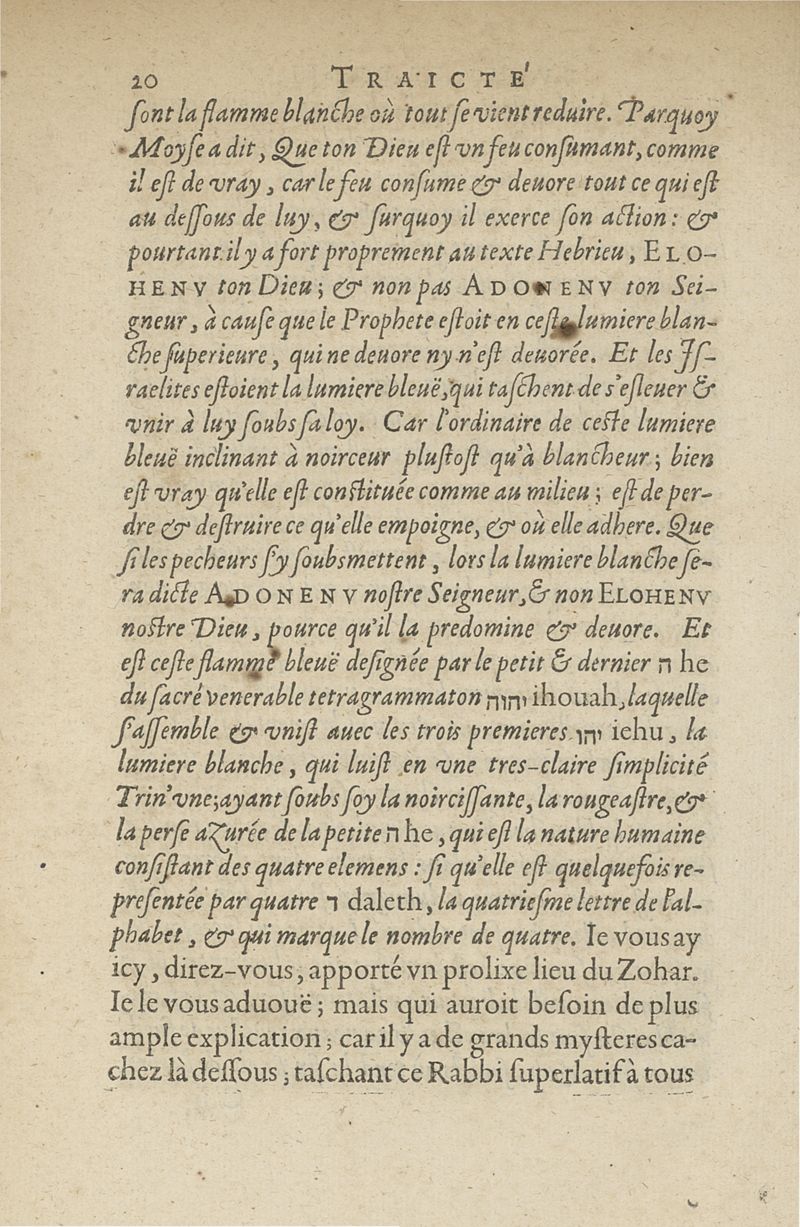 20 TRAICTE'
ſont la flamme blanche où tout ſe vient reduire. Parquoy
Moyſe a dit, Que ton Dieu eſt vn feu conſumant, comme
il eſt de vray, car le feu conſume & deuore tout ce qui eſt
au deſſous de luy, & ſurquoy il exerce ſon action: &
pourtant il y a fort proprement au texte Hebrieu, ELO-
HENV ton Dieu; & non pas ADONENV ton Sei-
gneur, à cauſe que le Prophete eſtoit en ceſte lumiere blan-
che ſuperieure, qui ne deuore ny n'eſt deuorée. Et les Iſ-
raelites eſtoient la lumiere bleuë, qui taſchent de s'eſleuer &
vnir à luy ſoubs ſa loy. Car l'ordinaire de ceſte lumiere
bleuë inclinant à noirceur pluſtoſt qu'à blancheur; bien
eſt vray qu'elle eſt conſtituée comme au milieu; eſt de per-
dre & deſtruire ce qu'elle empoigne, & où elle adhere. Que
ſi les pecheurs s'y ſoubsmettent, lors la lumiere blanche ſe-
ra dicte ADONENV noſtre Seigneur, & non ELOHENV
noſtre Dieu, pource qu'il la predomine & deuore. Et
eſt ceſte flamme bleuë deſignée par le petit & dernier ה he
du ſacré venerable tetragrammaton יהוה ihouah, laquelle
ſ'aſſemble & vniſt auec les trois premieres יהו iehu, la
lumiere blanche, qui luiſt en vne tres-claire ſimplicité
Trin'vne; ayant ſoubs ſoy la noirciſſante, la rougeaſtre, &
la perſe azurée de la petite ה he, qui eſt la nature humaine
conſiſtant des quatre elemens: ſi qu'elle eſt quelquefois re-
preſentée par quatre ד daleth, la quatrieſme lettre de l'al-
phabet, & qui marque le nombre de quatre. Ie vous ay
icy, direz-vous, apporté vn prolixe lieu du Zohar.
Ie le vous aduouë; mais qui auroit beſoin de plus
ample explication; car il y a de grands myſteres ca-
chez là deſſous; taſchant ce Rabbi ſuperlatif à tous